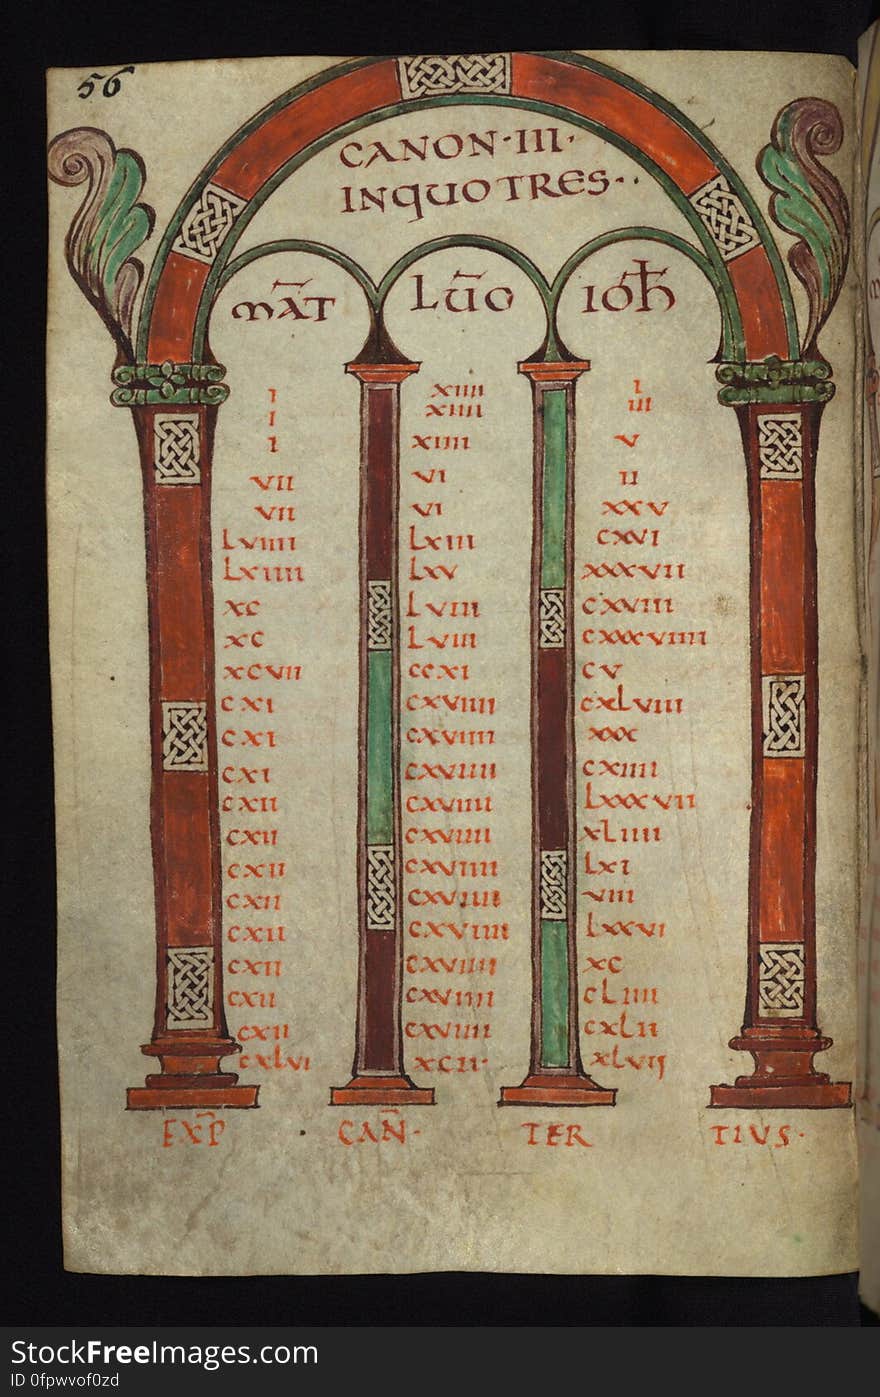 56
CANON·III·
INQUOTRES··
MAT LUO IOH
I XIIII I
I XIIII III
I XIIII V
VII VI II
VII VI XXV
LVIIII LXIII CXVI
LXIIII LXV XXXVII
XC LVIII CXVIII
XC LVIII CXXXVIIII
XCVII CCXI CV
CXI CXVIIII CXLVIII
CXI CXVIIII XXX
CXI CXVIIII CXIIII
CXII CXVIIII LXXXVII
CXII CXVIIII XLIIII
CXII CXVIIII LXI
CXII CXVIIII VIII
CXII CXVIIII LXXVI
CXII CXVIIII XC
CXII CXVIIII CLIIII
CXII CXVIIII CXLII
CXLVI XCII· XLVII
EXP CAN· TER TIUS·
StockFreeImages.com
ID 0fpwvof0zd